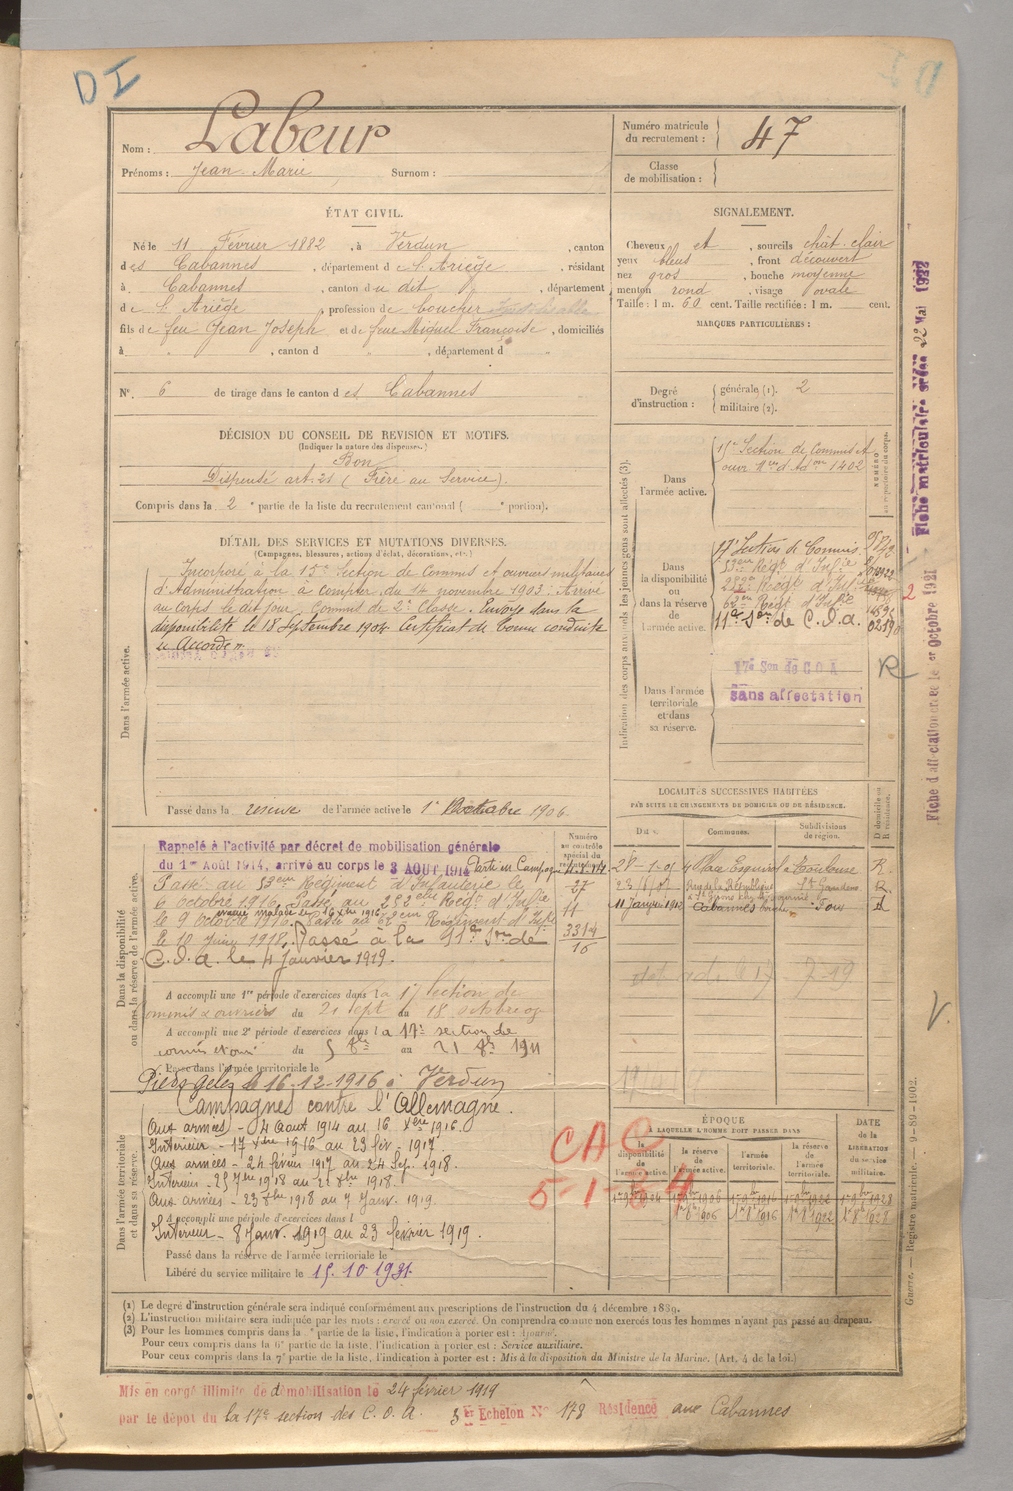 DI
Nom : Labeur
Prénoms : Jean Marie Surnom :
Numéro matricule du recrutement : 47
Classe de mobilisation :
ÉTAT CIVIL.
Né le 11 Février 1882, à Verdun, canton
des Cabannes, département de l'Ariège, résidant
à Cabannes, canton du dit, département
de l'Ariège, profession de boucher
fils de feu Jean Joseph et de feue Miquel Françoise, domiciliés
à " , canton d " , département d "
N° 6 de tirage dans le canton des Cabannes
SIGNALEMENT.
Cheveux et, sourcils chât-clair
yeux bleus, front découvert
nez gros, bouche moyenne
menton rond, visage ovale
Taille : 1 m. 60 cent. Taille rectifiée : 1 m. cent.
MARQUES PARTICULIÈRES :
Degré d'instruction : générale (1). 2
militaire (2).
DÉCISION DU CONSEIL DE REVISION ET MOTIFS.
(Indiquer la nature des dispenses.)
Bon
Dispensé art. 21 (Frère au Service).
Compris dans la 2e partie de la liste du recrutement cantonal ( e portion).
DÉTAIL DES SERVICES ET MUTATIONS DIVERSES.
(Campagnes, blessures, actions d'éclat, décorations, etc.)
Dans l'armée active.
Incorporé à la 15e Section de Commis et ouvriers militaires
d'Administration à compter du 14 novembre 1903. Arrivé
au corps le dit jour. Commis de 2e Classe. Envoyé dans la
disponibilité le 18 Septembre 1904. Certificat de bonne conduite
Accordé.
Passé dans la réserve de l'armée active le 1er Octobre 1906.
Indication des corps auxquels les jeunes gens sont affectés (3).
NUMÉRO au répertoire du corps.
Dans l'armée active.
15e Section de Commis et
ouvr. 1402
Dans la disponibilité ou dans la réserve de l'armée active.
17e Section de Commis
53eme Régt d'Infie
282e Régt d'Infie
62eme Régt d'Infie
11e Son de C.O.A.
Dans l'armée territoriale et dans sa réserve.
17e Son de COA
sans affectation
R
Fiche matriculaire créée 22 Mai 1922
Fiche d'affectation créée le 1er octobre 1921
2
Dans la disponibilité ou dans la réserve de l'armée active.
Rappelé à l'activité par décret de mobilisation générale
du 1er Août 1914, arrivé au corps le 3 AOUT 1914 Parti en Campagne
Passé au 53eme Régiment d'Infanterie le
6 octobre 1916. Passé au 282eme Régt d'Infie
évacué malade le 16 Xbre 1916
le 9 Octobre 1916. Passé au 62eme Régiment d'Infie
le 10 Juin 1918. Passé à la 11e Son de
C.O.A. le 4 Janvier 1919.
Numéro au contrôle spécial du recrutement.
27
11
3314
16
A accompli une 1re période d'exercices dans la 17 Section de
commis & ouvriers du 21 sept au 18 octobre 09
A accompli une 2e période d'exercices dans la 17e section de
du 5 8bre au 21 8b 1911
Passé dans l'armée territoriale le
le 16-12-1916 à Verdun
LOCALITÉS SUCCESSIVES HABITÉES
PAR SUITE DE CHANGEMENTS DE DOMICILE OU DE RÉSIDENCE.
Dates. Communes. Subdivisions de région. D domicile ou R résidence.
Place Esquirol Toulouse R.
Rue de la République St Gaudens R.
11 Janvier 1912 Cabannes Foix D
Dans l'armée territoriale et dans sa réserve.
Campagnes contre l'Allemagne.
Aux armées - 4 Aout 1914 au 16 Xbre 1916.
Intérieur - 17 Xbre 1916 au 23 fév. 1917.
Aux armées - 24 février 1917 au 24 Sep. 1918.
Intérieur - 25 7bre 1918 au 22 8bre 1918.
Aux armées - 23 8bre 1918 au 7 Janv. 1919
A accompli une période d'exercices dans l
Intérieur - 8 Janv. 1919 au 23 février 1919.
Passé dans la réserve de l'armée territoriale le
Libéré du service militaire le 15.10 1931.
ÉPOQUE
À LAQUELLE L'HOMME DOIT PASSER DANS
la disponibilité de l'armée active. la réserve de l'armée active. l'armée territoriale. la réserve de l'armée territoriale.
DATE de la LIBÉRATION du service militaire.
1er 9bre 1904 1er 9bre 1906 1er 9bre 1916 1er 9bre 1922 1er 9bre 1928
1er 8b 1906 1er 8b 1916 1er 8b 1922 1er 8b 1928
CAC
5-1-34
V.
(1) Le degré d'instruction générale sera indiqué conformément aux prescriptions de l'instruction du 4 décembre 1889.
(2) L'instruction militaire sera indiquée par les mots : exercé ou non exercé. On comprendra comme non exercés tous les hommes n'ayant pas passé au drapeau.
(3) Pour les hommes compris dans la e partie de la liste, l'indication à porter est : Ajourné.
Pour ceux compris dans la 6e partie de la liste, l'indication à porter est : Service auxiliaire.
Pour ceux compris dans la 7e partie de la liste, l'indication à porter est : Mis à la disposition du Ministre de la Marine. (Art. 4 de la loi.)
Guerre. — Registre matricule. — 9-89-1902.
Mis en congé illimité de démobilisation le 24 février 1919
par le dépôt du la 17e section des C.O.A. 3er Echelon N° 178 Résidence aux Cabannes